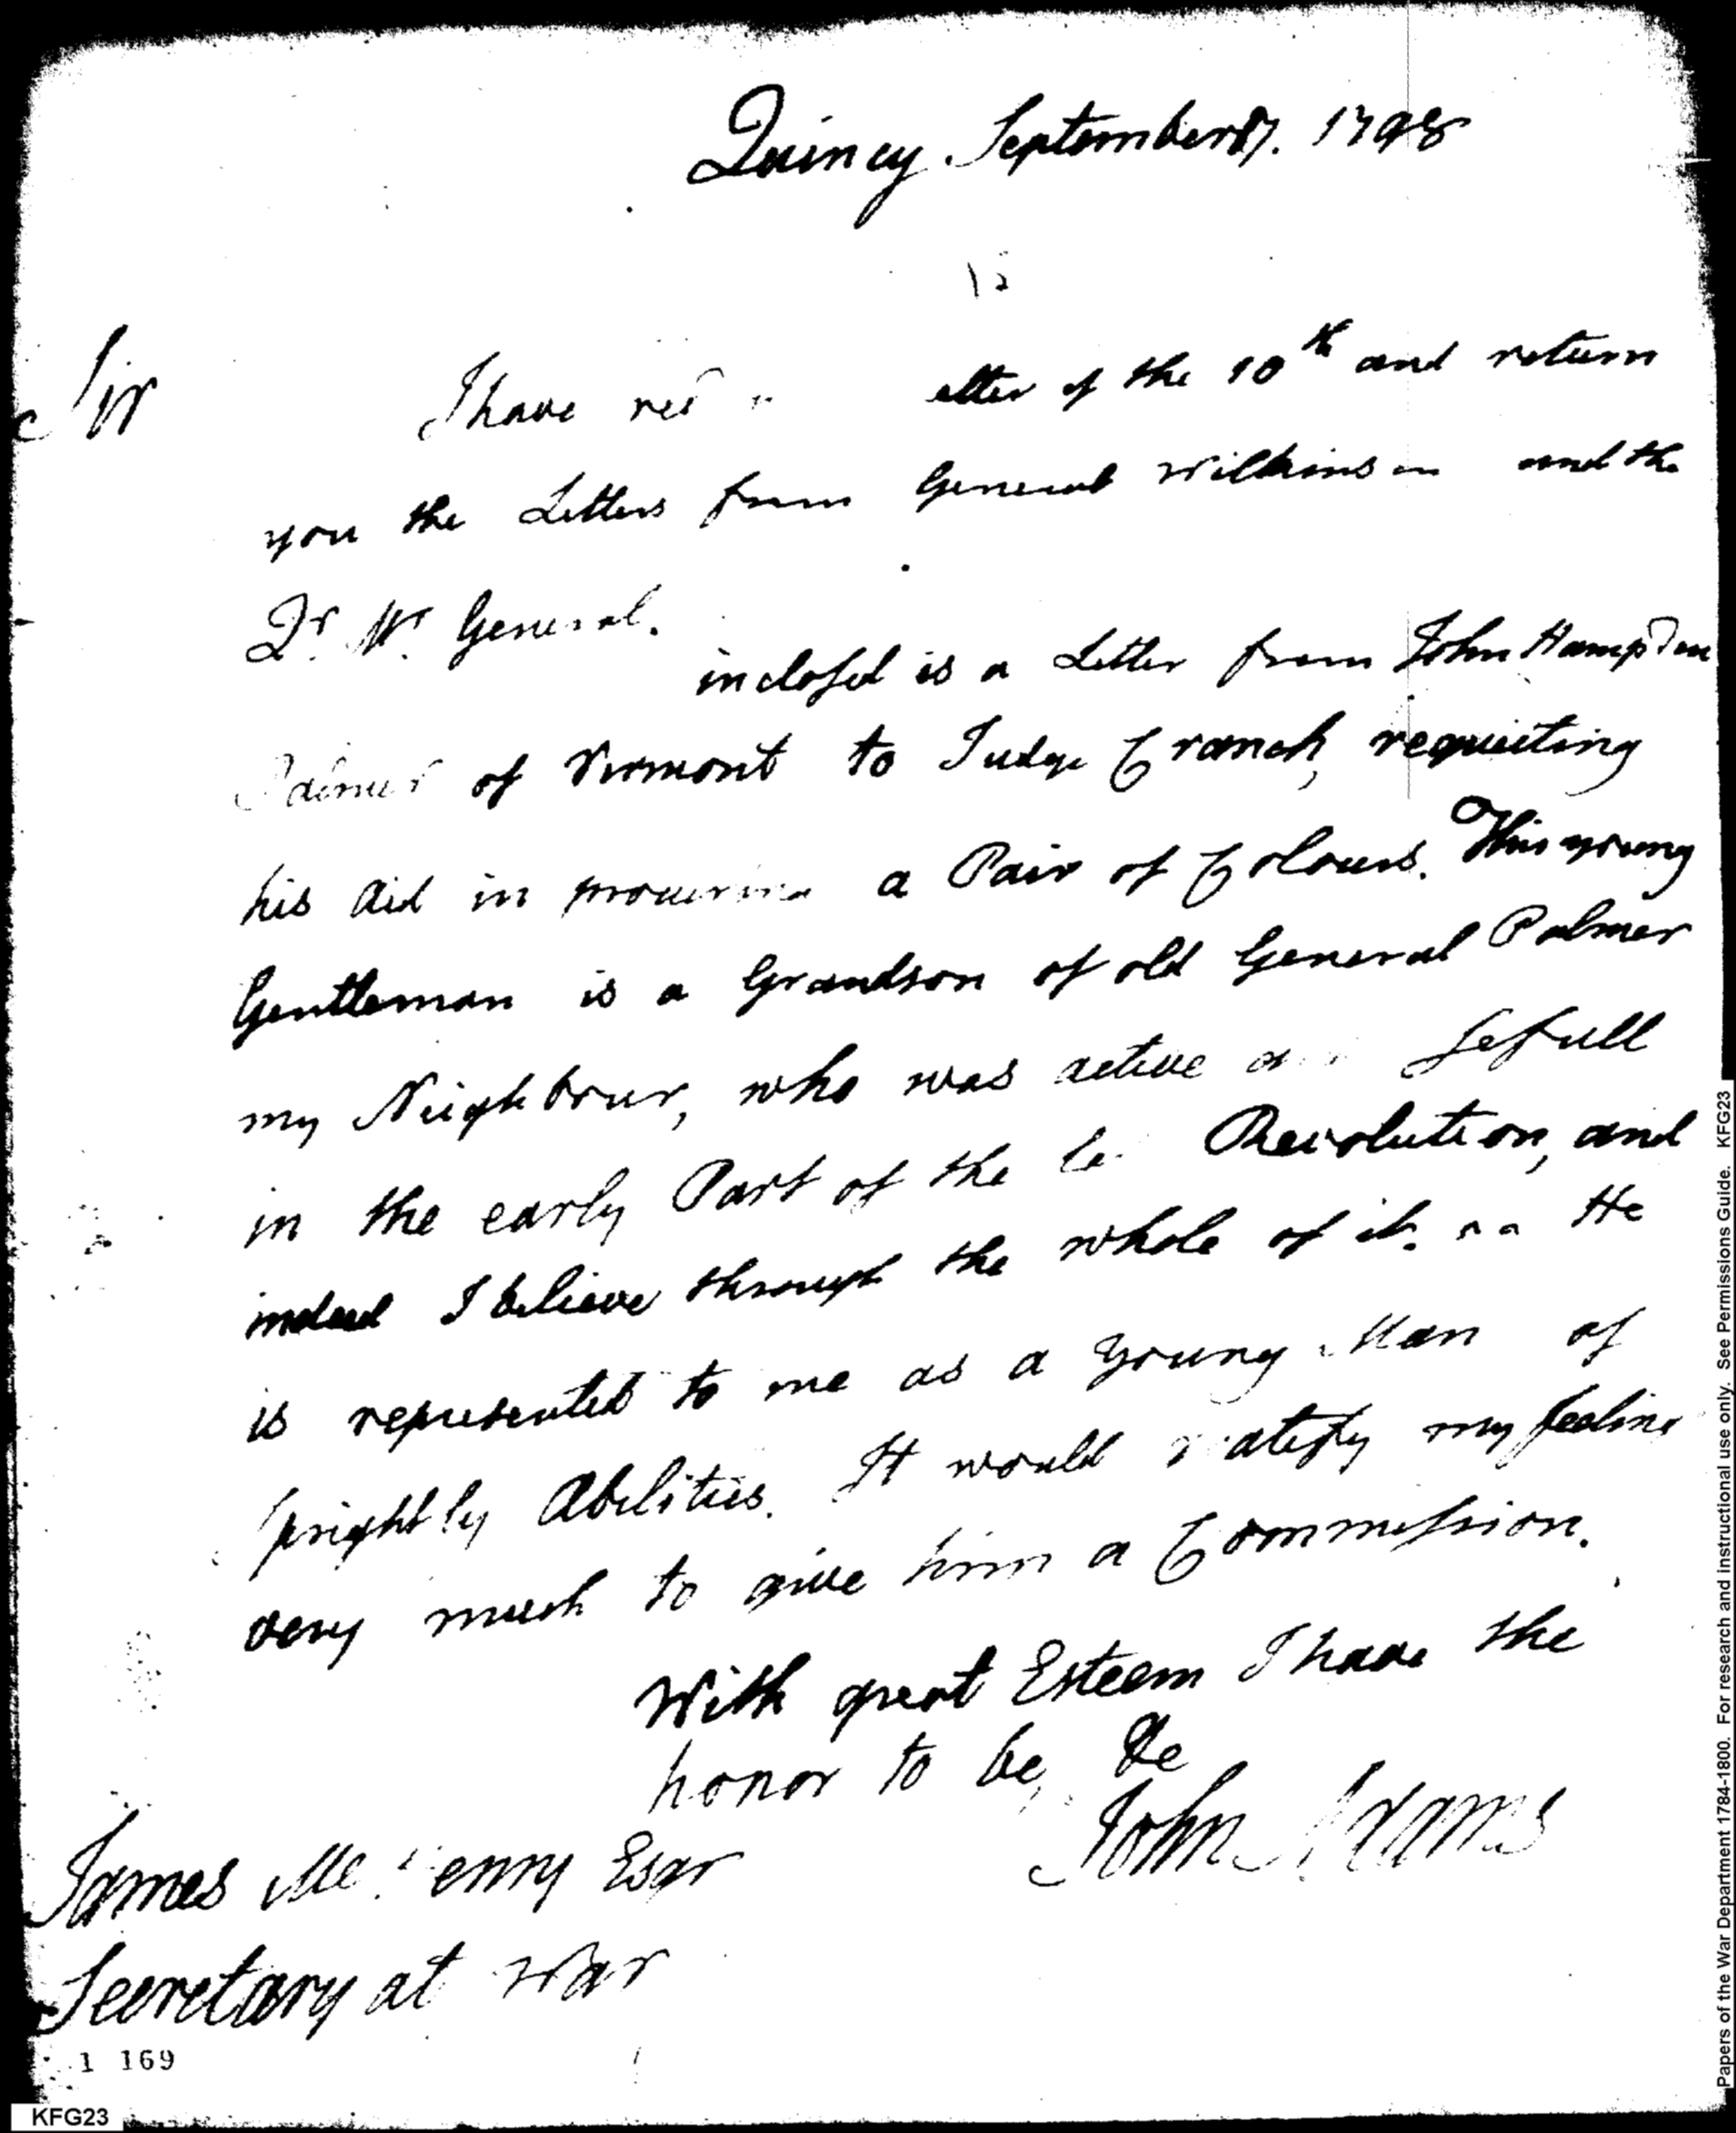 Quincy September 17. 1798
12
Sir
I have recd etter of the 10th and return
you the Letters from General Wilkinson and the
Qr. Mr. General.
inclosed is a Letter from John Hampden
Palmer of Vermont to Judge Cranch, requesting
his Aid in procuring a Pair of Colours. This young
Gentleman is a Grandson of old General Palmer
my Neighbour, who was active a sefull
in the early Part of the Revolution, and
indeed I believe through the whole of it. He
is represented to me as a young Man of
sprightly Abilities. It would gratify my feelings
very much to give him a Commission.
With great Esteem I have the
honor to be, &c
John Adams
James McHenry Esqr
Secretary at War
1 169
KFG23
Papers of the War Department 1784-1800. For research and instructional use only. See Permissions Guide. KFG23